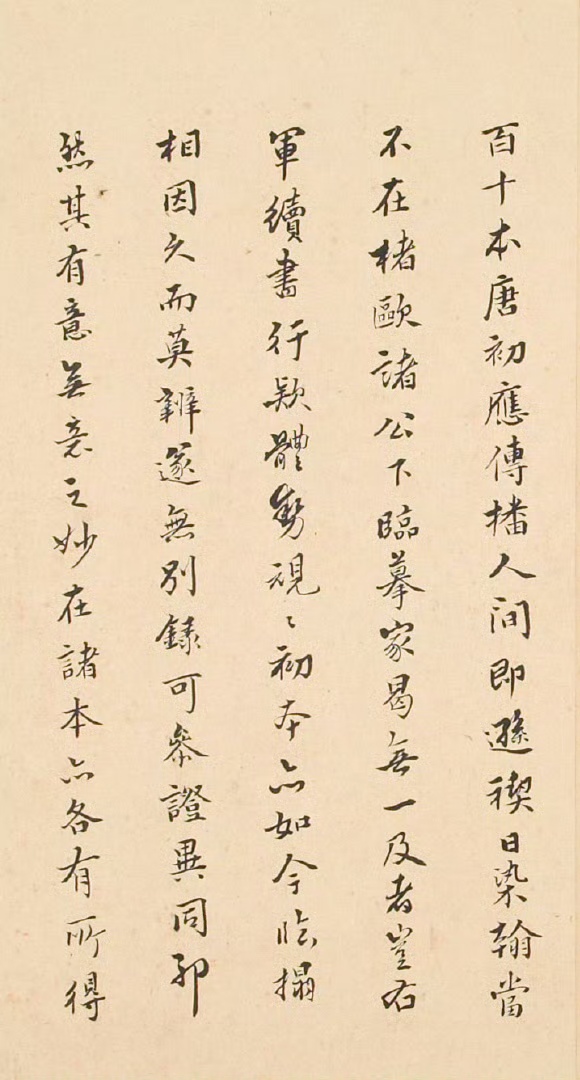 百十本唐初應傳播人间即遜禊日染翰當
不在楮歐諸公下臨摹家曷無一及者豈右
軍續書行款體勢視〻初本亦如今臨搨
相因久而莫辨遂無別錄可叅證異同耶
然其有意無意之妙在諸本亦各有所得